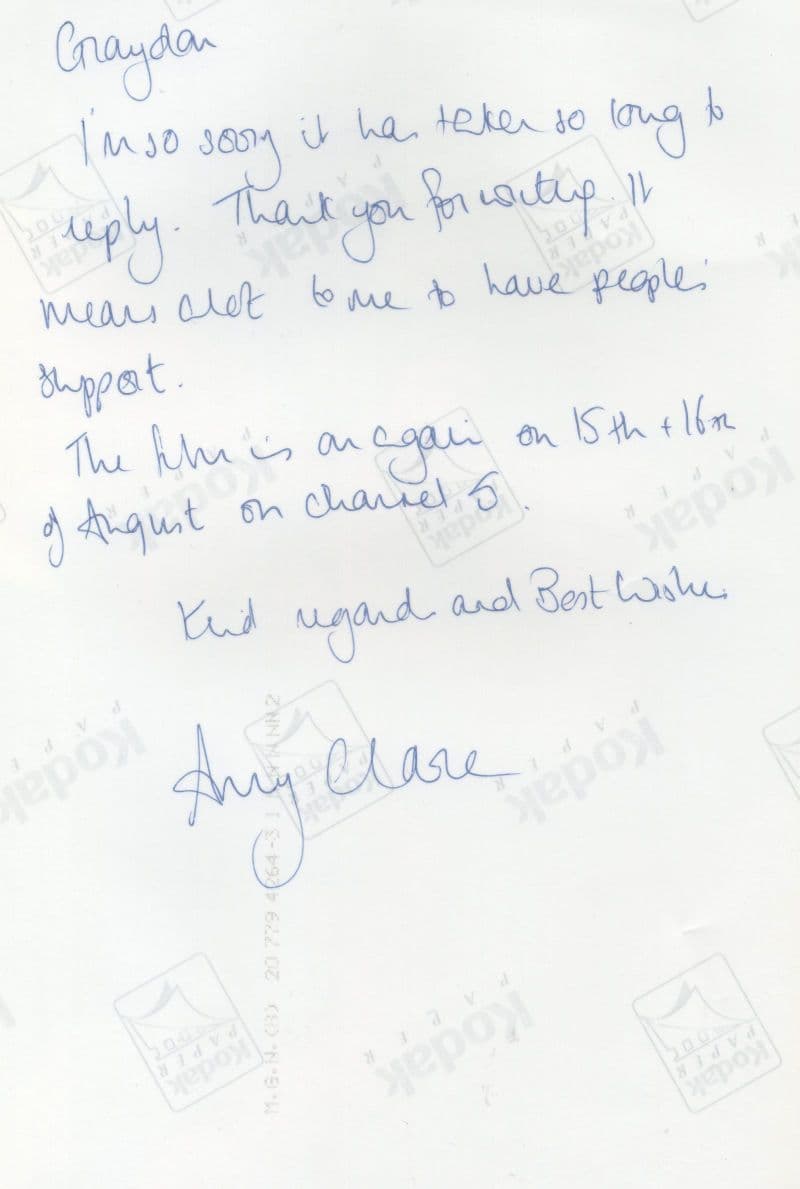 Graydon
I'm so sorry it has taken so long to
reply. Thank you for writing. It
means alot to me to have peoples'
support.
The film is on again on 15th + 16th
of August on channel 5.
Kind regards and Best Wishes
Amy Clare
Kodak
PAPER
M.G.N. (3) 20 779 4264-3 1